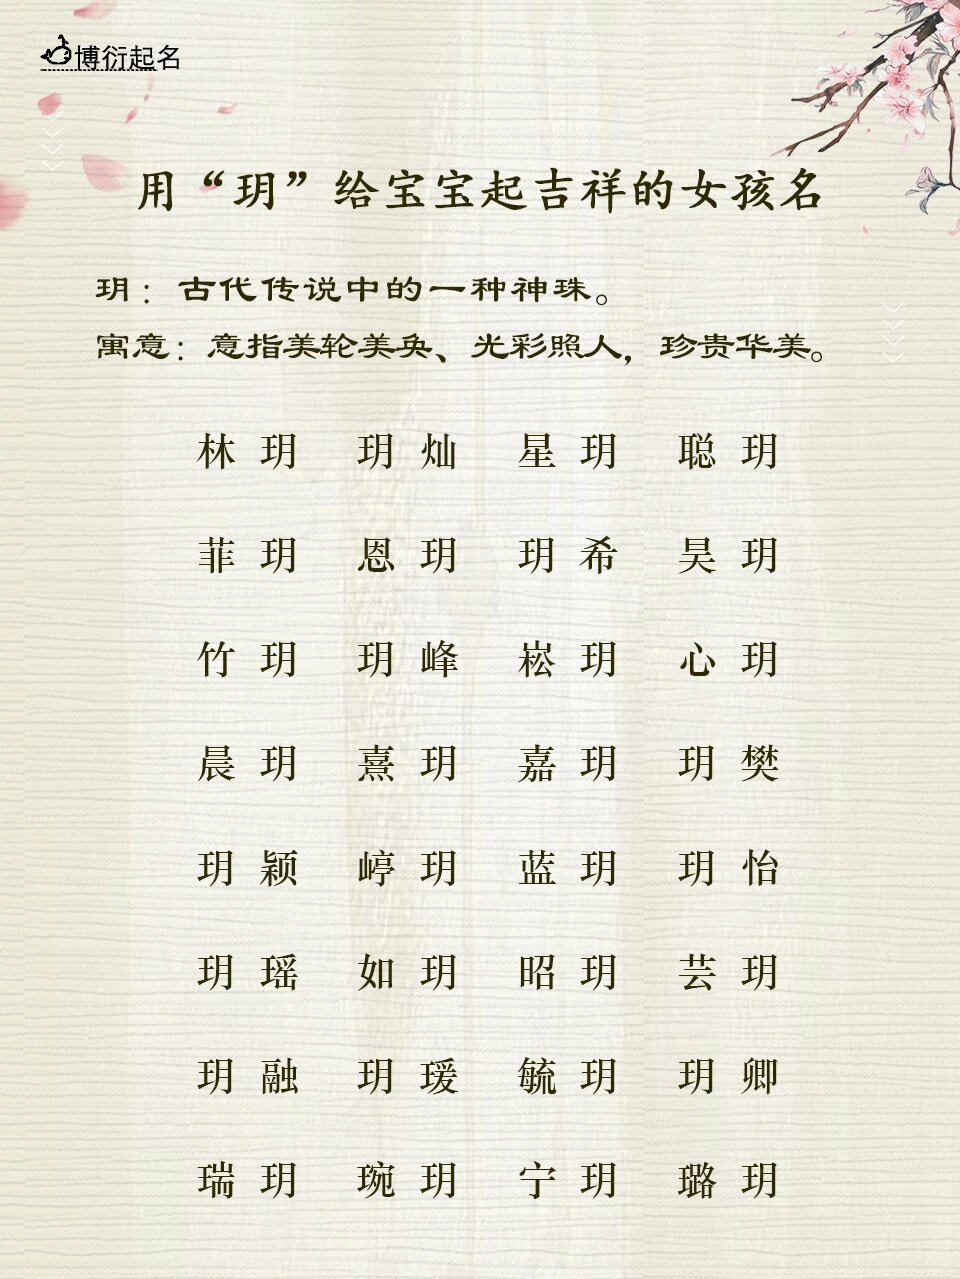 博衍起名
用“玥”给宝宝起吉祥的女孩名
玥：古代传说中的一种神珠。
寓意：意指美轮美奂、光彩照人，珍贵华美。
林玥 玥灿 星玥 聪玥
菲玥 恩玥 玥希 昊玥
竹玥 玥峰 崧玥 心玥
晨玥 熹玥 嘉玥 玥樊
玥颖 崞玥 蓝玥 玥怡
玥瑶 如玥 昭玥 芸玥
玥融 玥瑗 毓玥 玥卿
瑞玥 琬玥 宁玥 璐玥